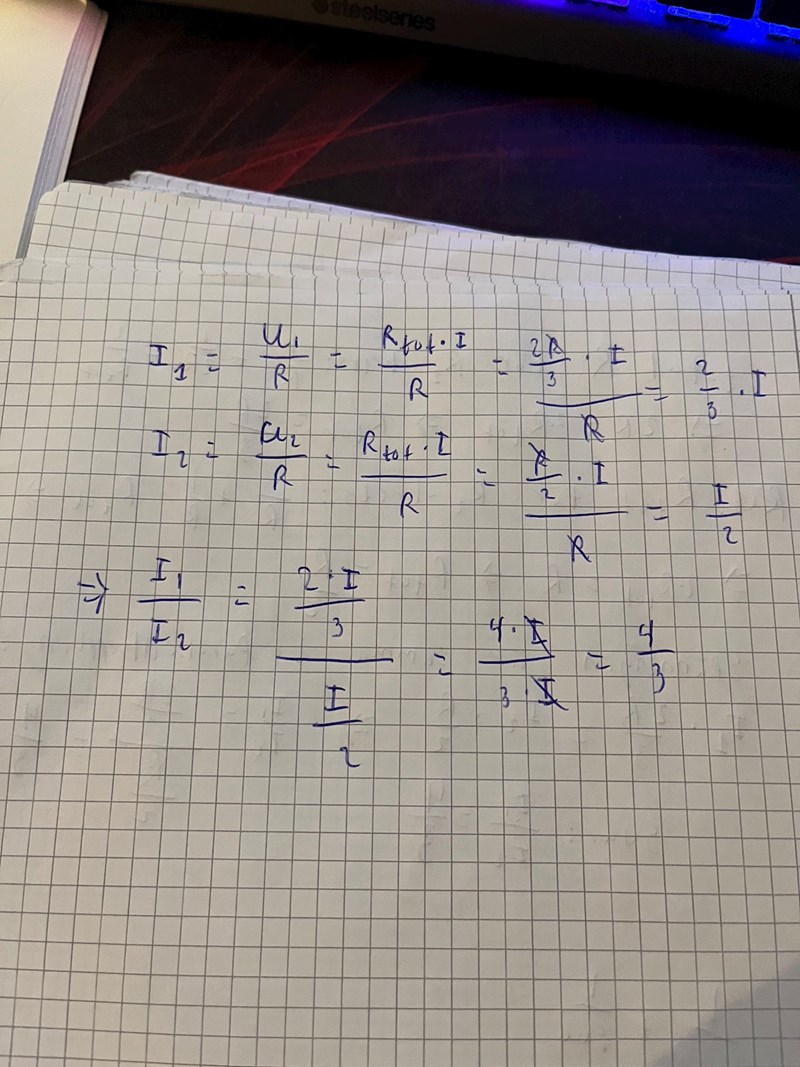 steelseries
I₁ = U₁/R = Rtot · I/R = (2R/3 · I)/R = 2/3 · I
I₂ = U₂/R = Rtot · I/R = (R/2 · I)/R = I/2
⇒ I₁/I₂ = (2 · I/3)/(I/2) = 4 · I/3 · I = 4/3